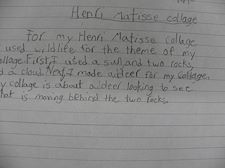 Henri Matisse collage
For my Henri Matisse Collage
used wildlife for the theme of my
ollage. First, I used a sun, and two rocks,
d a cloud. Next, I made a deer for my Collage.
y collage is about a deer looking to see
hat is moving behind the two rocks.